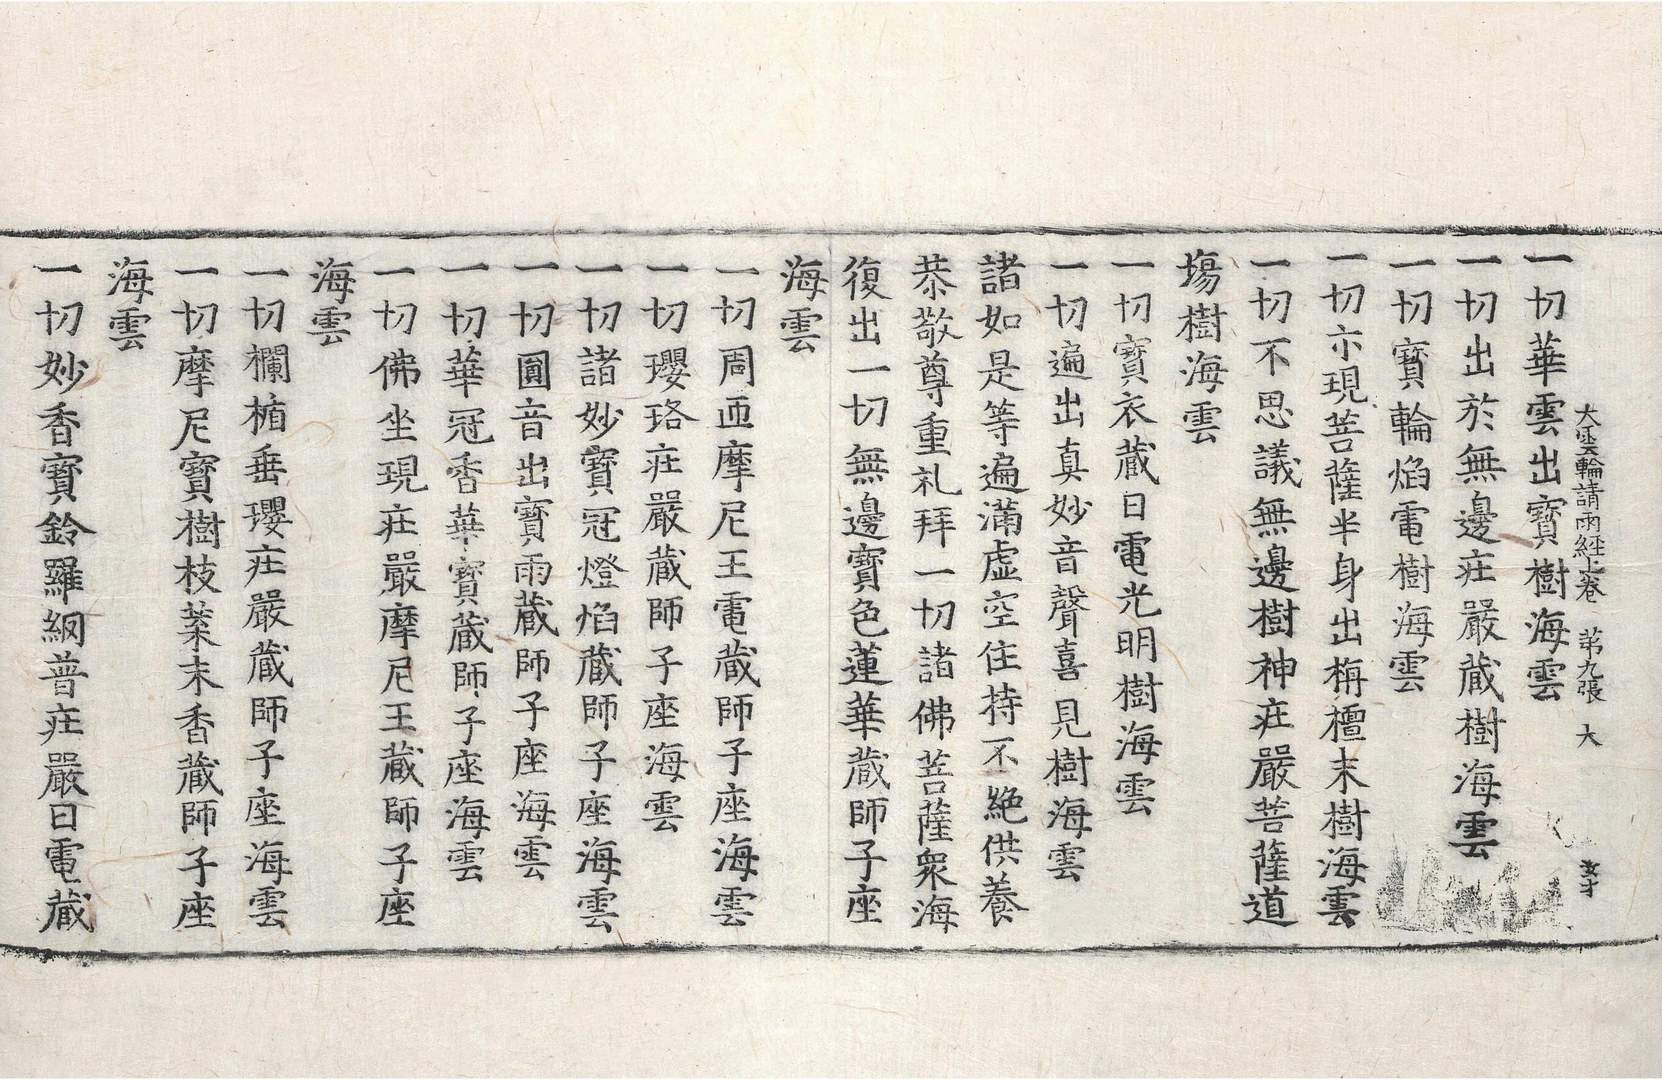 大雲輪請雨經上卷 苐九張 大
一切華雲出寶樹海雲
一切出於無邊莊嚴蔵樹海雲
一切寶輪焰電樹海雲
一切示現菩薩半身出栴檀末樹海雲
一切不思議無邊樹神莊嚴菩薩道
場樹海雲
一切寶衣蔵日電光明樹海雲
一切遍出真妙音聲喜見樹海雲
諸如是等遍滿虛空住持不絶供養
恭敬尊重礼拜一切諸佛菩薩衆海
復出一切無邊寶色蓮華蔵師子座
海雲
一切周迊摩尼王電蔵師子座海雲
一切瓔珞莊嚴蔵師子座海雲
一切諸妙寶冠燈焰蔵師子座海雲
一切圓音出寶雨蔵師子座海雲
一切華冠香華寶蔵師子座海雲
一切佛坐現莊嚴摩尼王蔵師子座
海雲
一切欄楯垂瓔莊嚴蔵師子座海雲
一切摩尼寶樹枝葉末香蔵師子座
海雲
一切妙香寶鈴羅網普莊嚴日電蔵